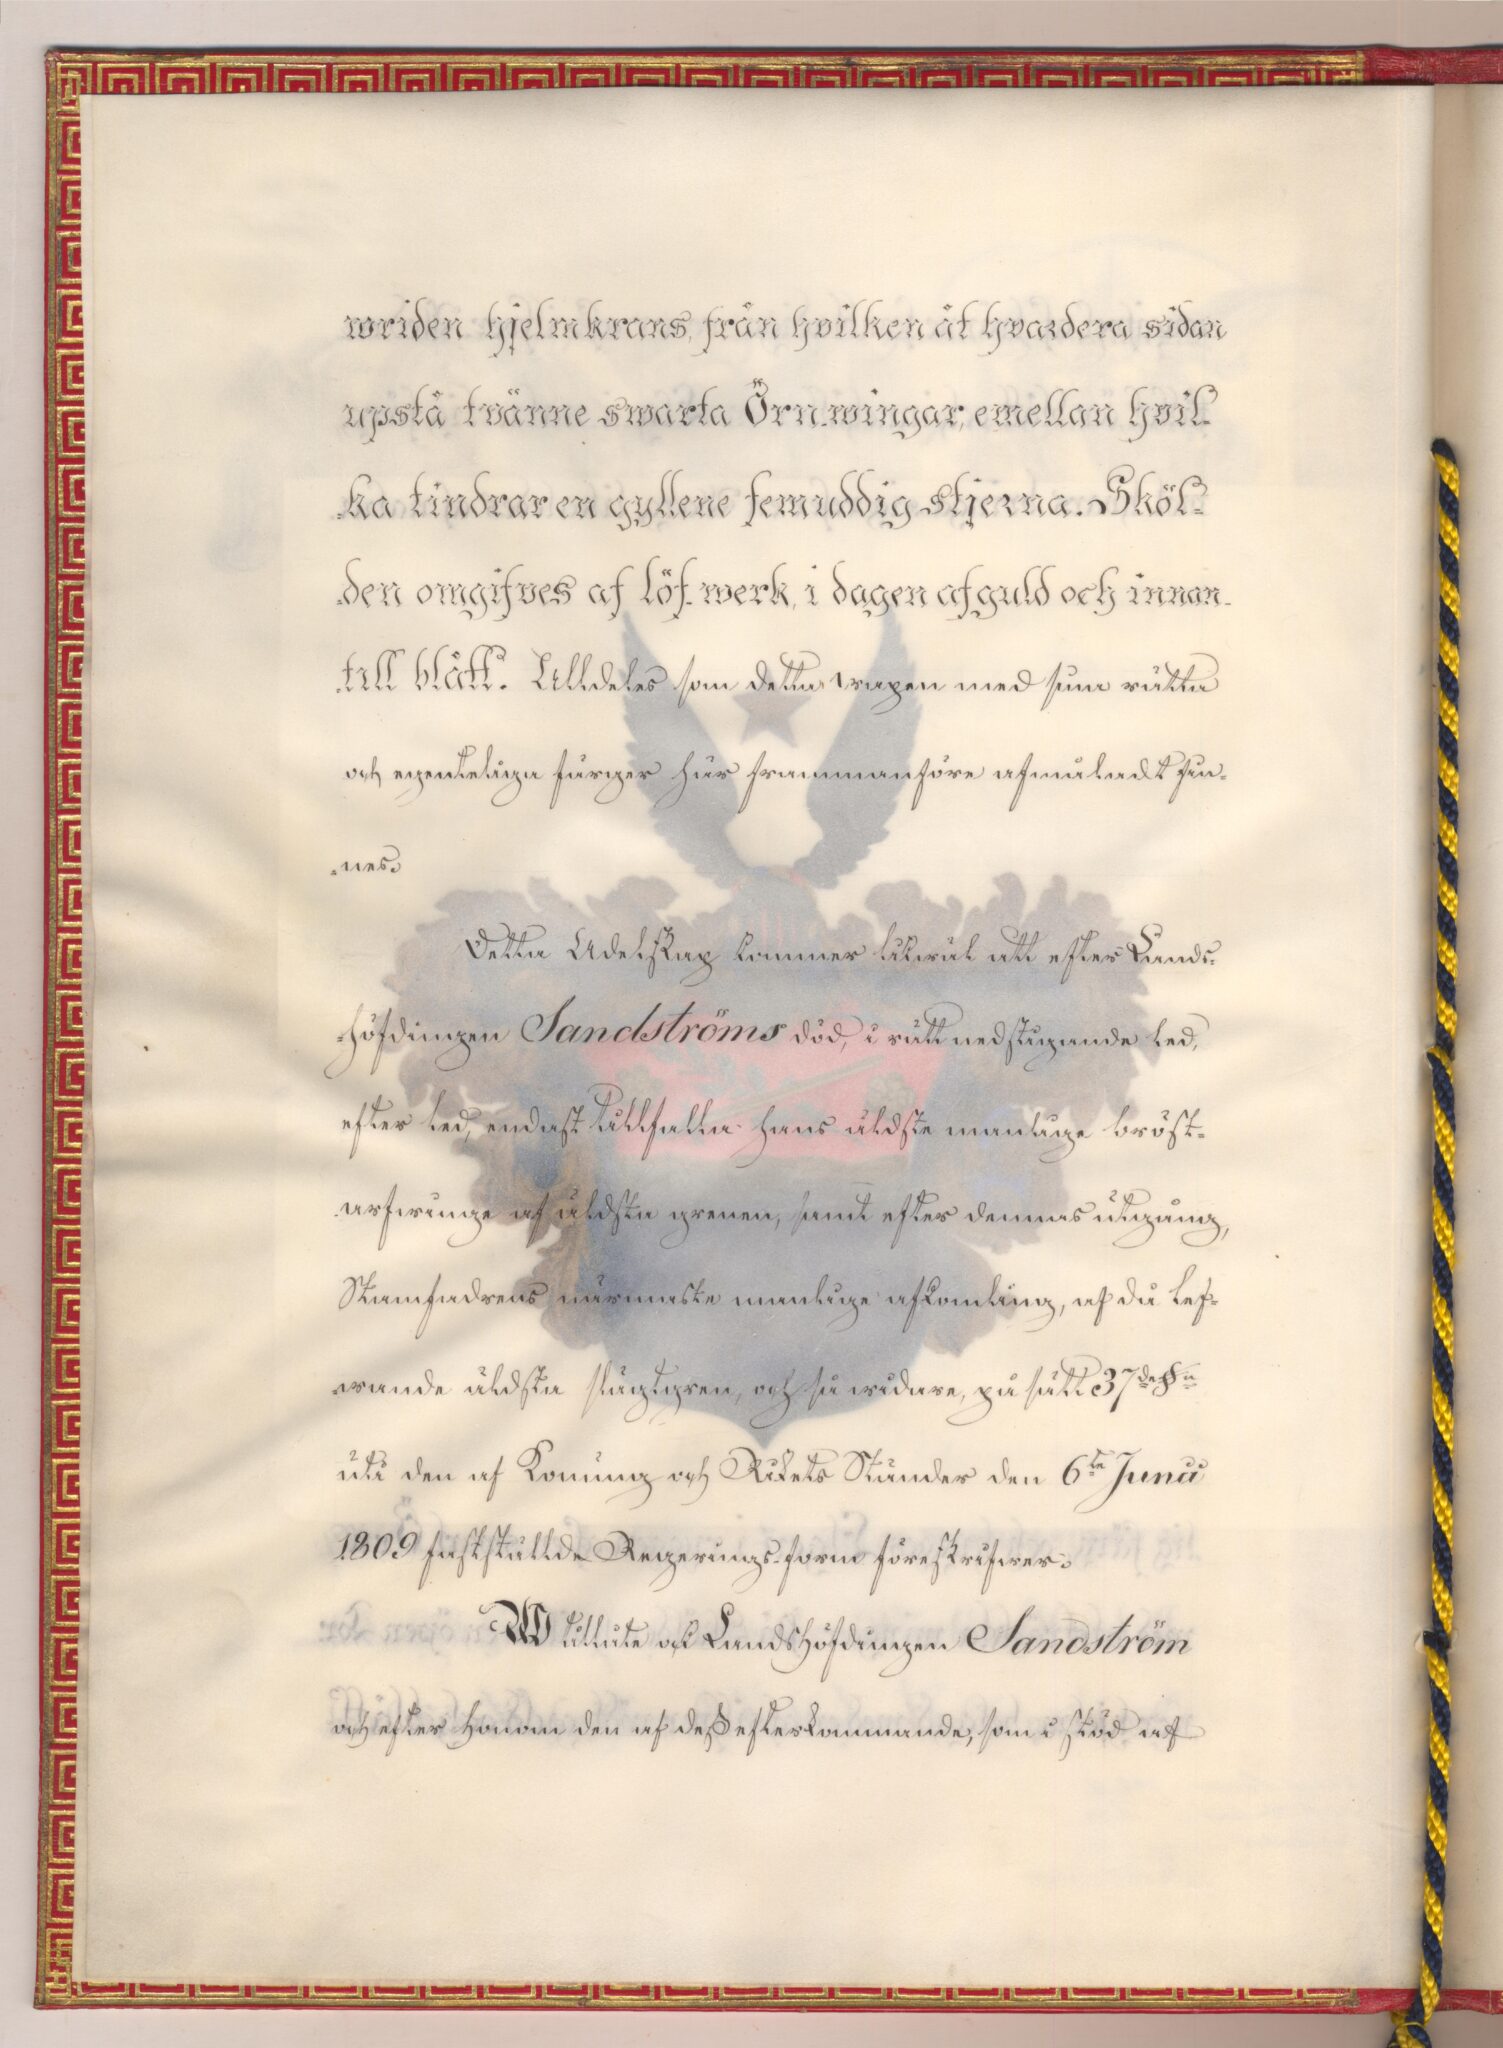 wriden hjelmkrans, från hvilken åt hvardera sidan
upstå tvänne swarta Örn-wingar, emellan hvil-
-ka tindrar en gyllene femuddig stjerna. Sköl-
-den omgifves af löf-werk, i dagen af guld och innan-
-till blått. Alldeles som detta wapen med sina rätta
och egenteliga färger här frammanföre afmåladt fin-
-nes.
Detta Adelskap kommer likwäl att efter Lands-
-höfdingen Sandströms död, i rätt nedstigande led,
efter led, endast tillfalla hans äldste manlige bröst-
-arfwinge af äldsta grenen, samt efter dennas utgång,
Stamfadrens närmaste manlige afkomling, af då lef-
-wande äldsta slägtgren, och så widare, på sätt 37de §n
uti den af Konung och Rikets Ständer den 6te Junii
1809 fastställde Regerings-form föreskrifwer.
Wi tillåte ock Landshöfdingen Sandström
och efter honom den af dess efterkommande, som i stöd af